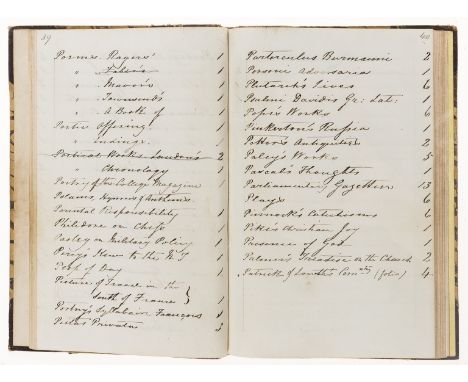 39
Poems Rogers' 1
" Fabers 1
" Mavor's 1
" Townsend's 1
" A Book of 1
Poetic Offering 1
" endings 1
Poetical Works Landon's 2
" Chronology 1
Poetry of the College Magazine 1
Psalms, Hymns & Anthems
Parental Responsibility 1
Philidore on Chess 1
Pasley on Military Policy 1
to the N T 1
Port of 1
Picture of France in the
South of France 1
Syllabaire François 1
Pietas Privatus 3
40
Paterculus Burmanni 2
Porsoni Adversaria 1
Plutarch's Lives 6
Psalmi Davidis Gr: Lat: 1
Pope's Works 6
Pinkerton's Russia 1
Potter's Antiquities 2
Paley's Works 5
Pascal's Thoughts 1
Parliamentary Gazetteer 13
Plays 6
Pinnock's Catechisms 6
Pike's Christian Joy 1
Presence of God 1
Palmer's Treatise on the Church 2
Patrick & Lowth's Com.ty (folio) 4